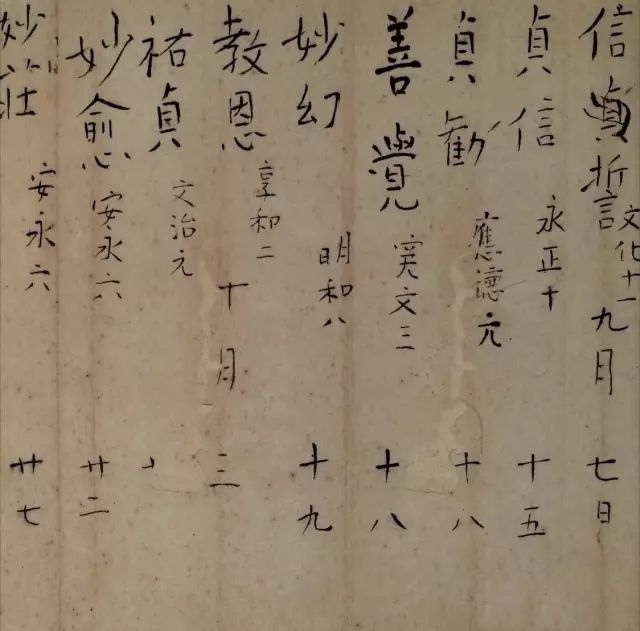 信眞誓 文化十一 九月 七日
貞信 永正十 十五
貞勧 應德元 十八
善覺 寛文三 十八
妙幻 明和八 十九
教恩 享和二 十月 三
祐貞 文治元
妙愈 安永六 廿二
妙荘 安永六 廿七